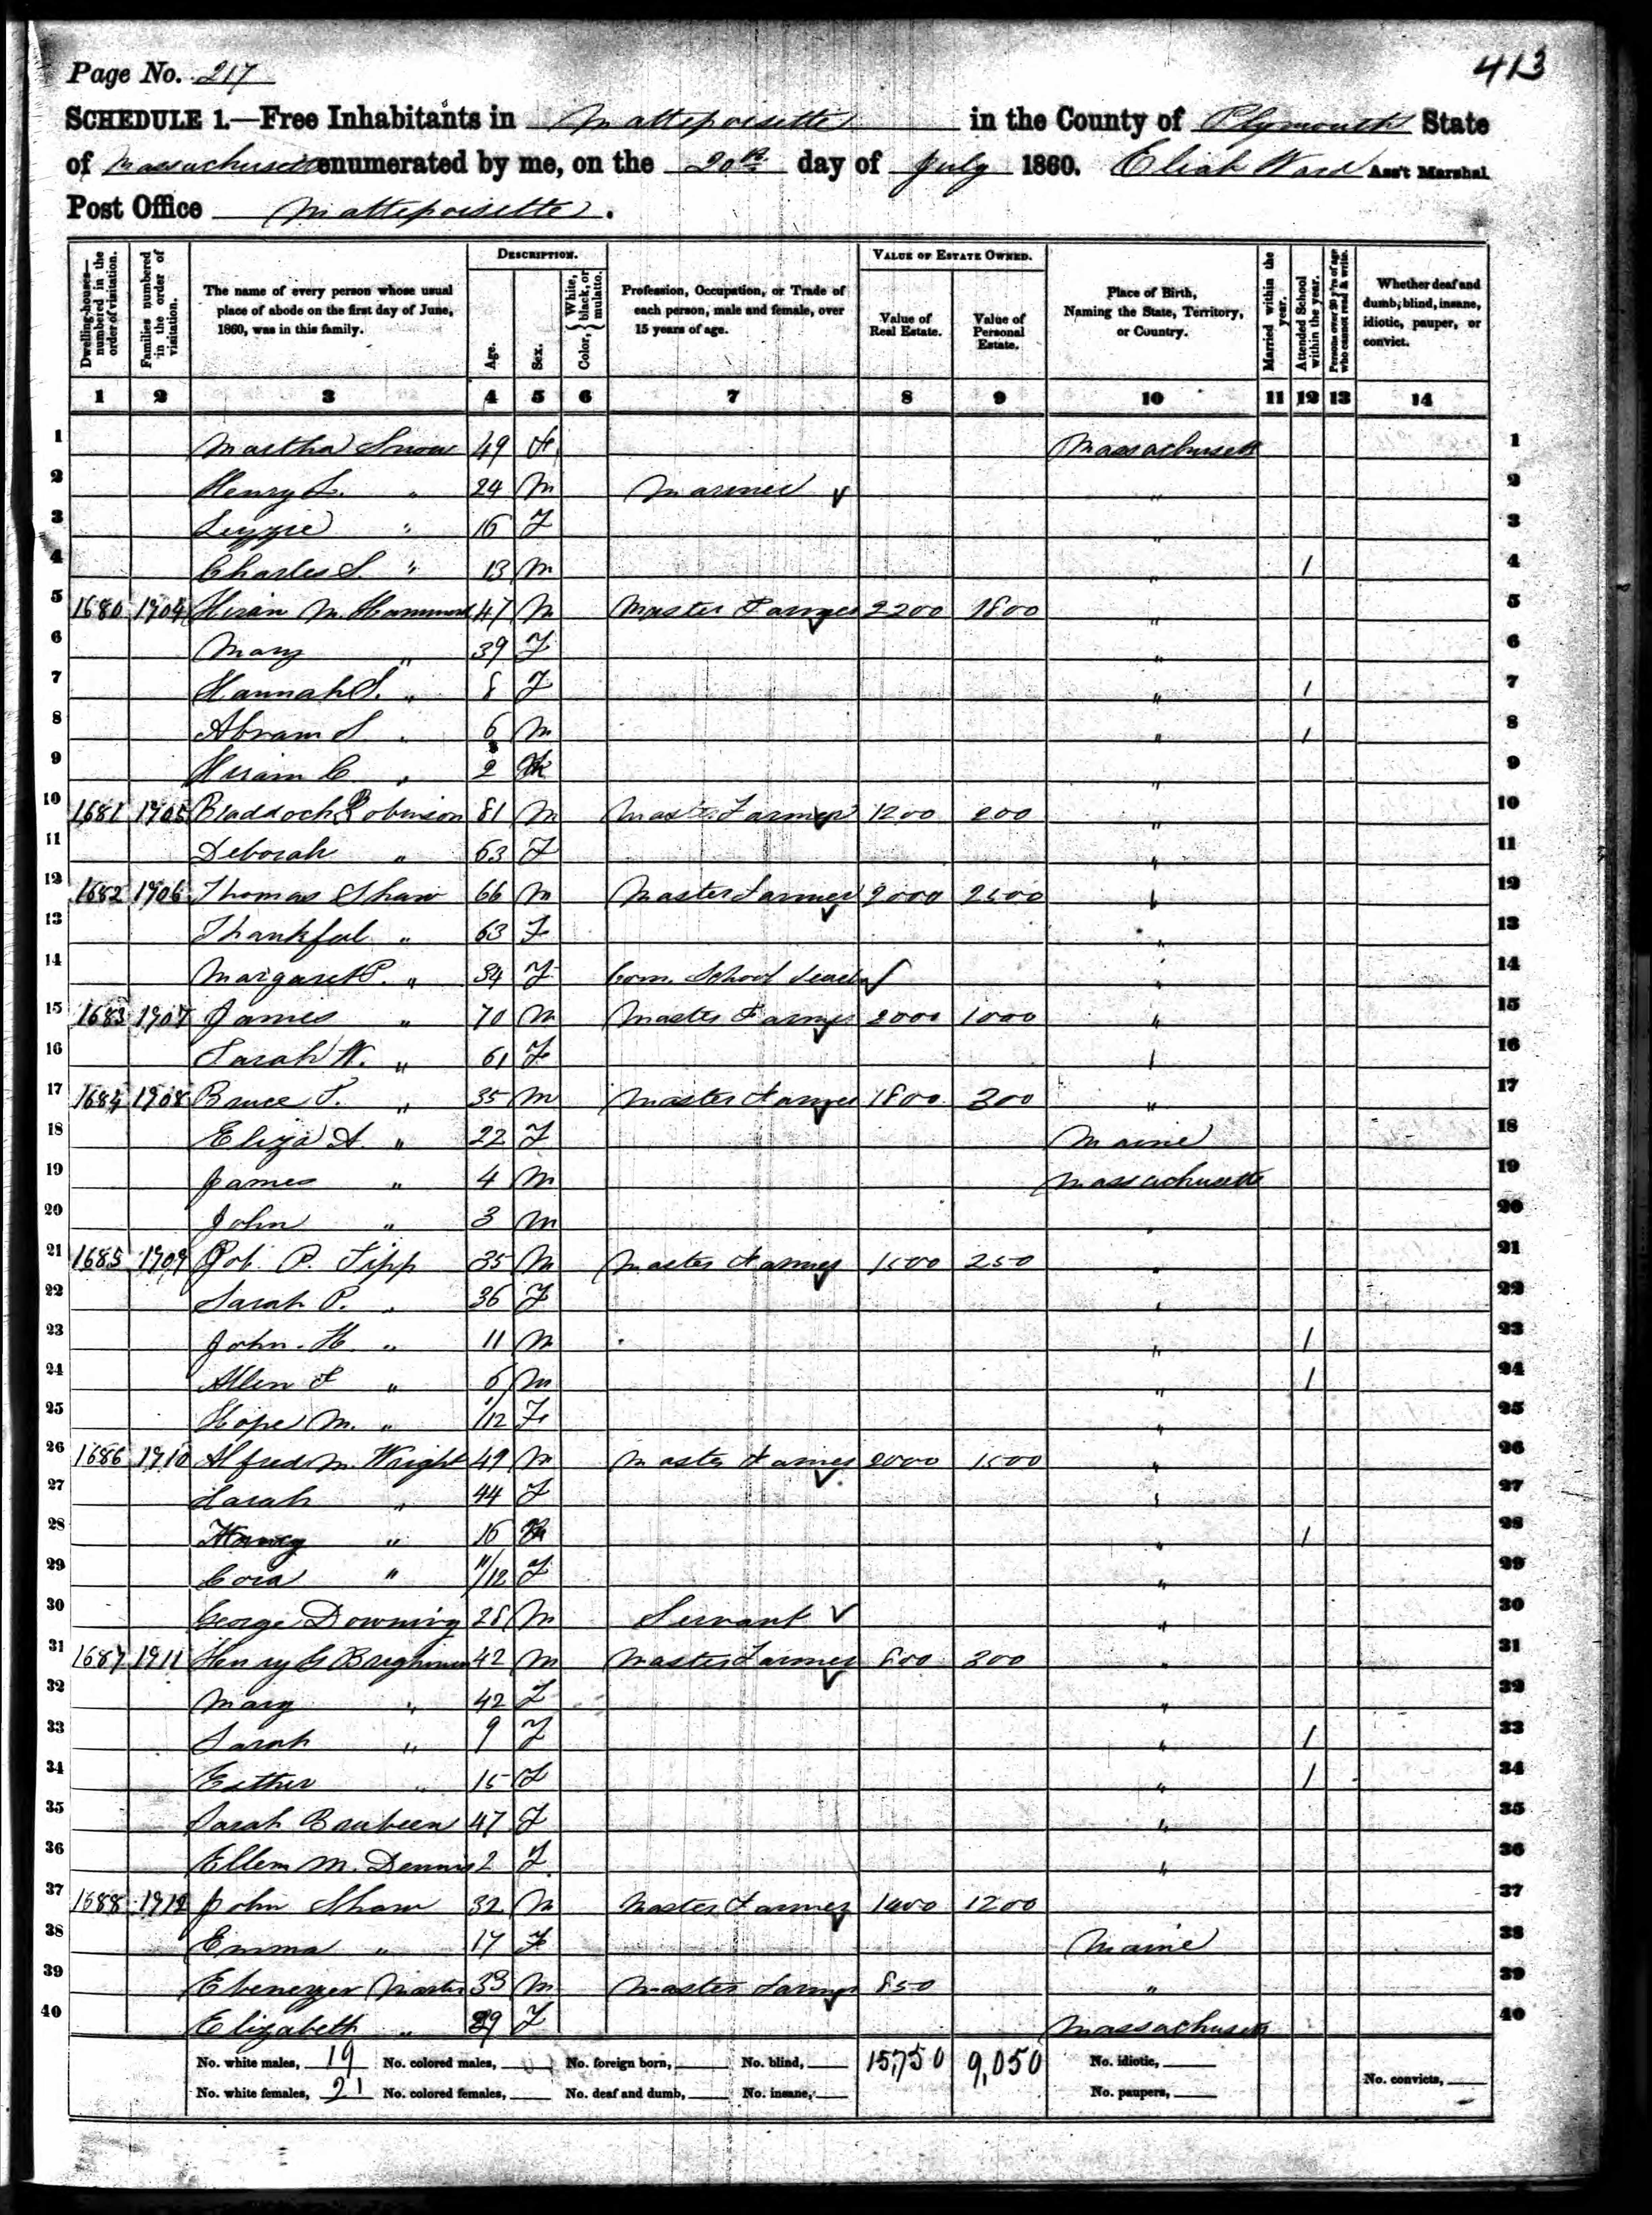 413
Page No. 217
SCHEDULE 1.—Free Inhabitants in Mattepoisette in the County of Plymouth State
of Massachusetts enumerated by me, on the 20th day of July 1860. Eliab Ward Ass't Marshal.
Post Office Mattepoisette.
Dwelling-houses—numbered in the order of visitation. Families numbered in the order of visitation. The name of every person whose usual place of abode on the first day of June, 1860, was in this family. DESCRIPTION. Age. Sex. Color, { White, black, or mulatto. Profession, Occupation, or Trade of each person, male and female, over 15 years of age. VALUE OF ESTATE OWNED. Value of Real Estate. Value of Personal Estate. Place of Birth, Naming the State, Territory, or Country. Married within the year. Attended School within the year. Persons over 20 y'rs of age who cannot read & write. Whether deaf and dumb, blind, insane, idiotic, pauper, or convict.
1 2 3 4 5 6 7 8 9 10 11 12 13 14
1 Martha Snow 49 F Massachusetts 1
2 Henry L. " 24 M Mariner " 2
3 Lizzie " 16 F " 3
4 Charles S. " 13 M " / 4
5 1680 1904 Hiram M. Hammond 47 M Master Farmer 2200 1800 " 5
6 Mary " 39 F " 6
7 Hannah S. " 8 F " / 7
8 Abram S. " 6 M " / 8
9 Hiram C. " 2 M " 9
10 1681 1905 Braddock Robinson 81 M Mast. Farmer 1200 200 " 10
11 Deborah " 63 F " 11
12 1682 1906 Thomas Shaw 66 M Master Farmer 2000 2500 " 12
13 Thankful " 63 F " 13
14 Margaret P. " 34 F Com. School Teacher " 14
15 1683 1907 James " 70 M Master Farmer 2000 1000 " 15
16 Sarah W. " 61 F " 16
17 1684 1908 Bruce T. " 35 M Master Farmer 1800 300 " 17
18 Eliza A. " 22 F Maine 18
19 James " 4 M Massachusetts 19
20 John " 3 M " 20
21 1685 1909 Job P. Tipp 35 M Master Farmer 1500 250 " 21
22 Sarah P. " 36 F " 22
23 John H. " 11 M " / 23
24 Allen F " 6 M " / 24
25 Hope M. " 1/12 F " 25
26 1686 1910 Alfred M. Wright 49 M Master Farmer 2000 1500 " 26
27 Sarah " 44 F " 27
28 " 16 " / 28
29 Cora " 11/12 F " 29
30 George Downing 28 M Servant " 30
31 1687 1911 Henry G Brighman 42 M Master Farmer 800 300 " 31
32 Mary " 42 F " 32
33 Sarah " 9 F " / 33
34 Esther " 15 F " / 34
35 Sarah 47 F " 35
36 Ellem M. Dennis 2 F " 36
37 1688 1912 John Shaw 32 M Master Farmer 1400 1200 37
38 Emma " 17 F Maine 38
39 Ebenezer 33 M Master Farmer 850 " 39
40 Elizabeth " 29 F Massachusetts 40
No. white males, 19 No. colored males, No. foreign born, No. blind, 15,750 9,050 No. idiotic,
No. white females, 21 No. colored females, No. deaf and dumb, No. insane, No. paupers, No. convicts,